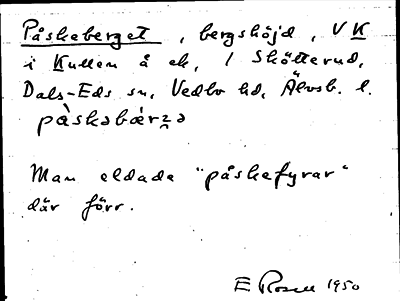 Påskeberget, bergshöjd, V K
i Kullen å ek, / Skötterud,
Dals-Eds sn, Vedbo hd, Älvsb. l.
påskəbærʒə
Man eldade "påskefyrar"
där förr.
E Rosell 1950